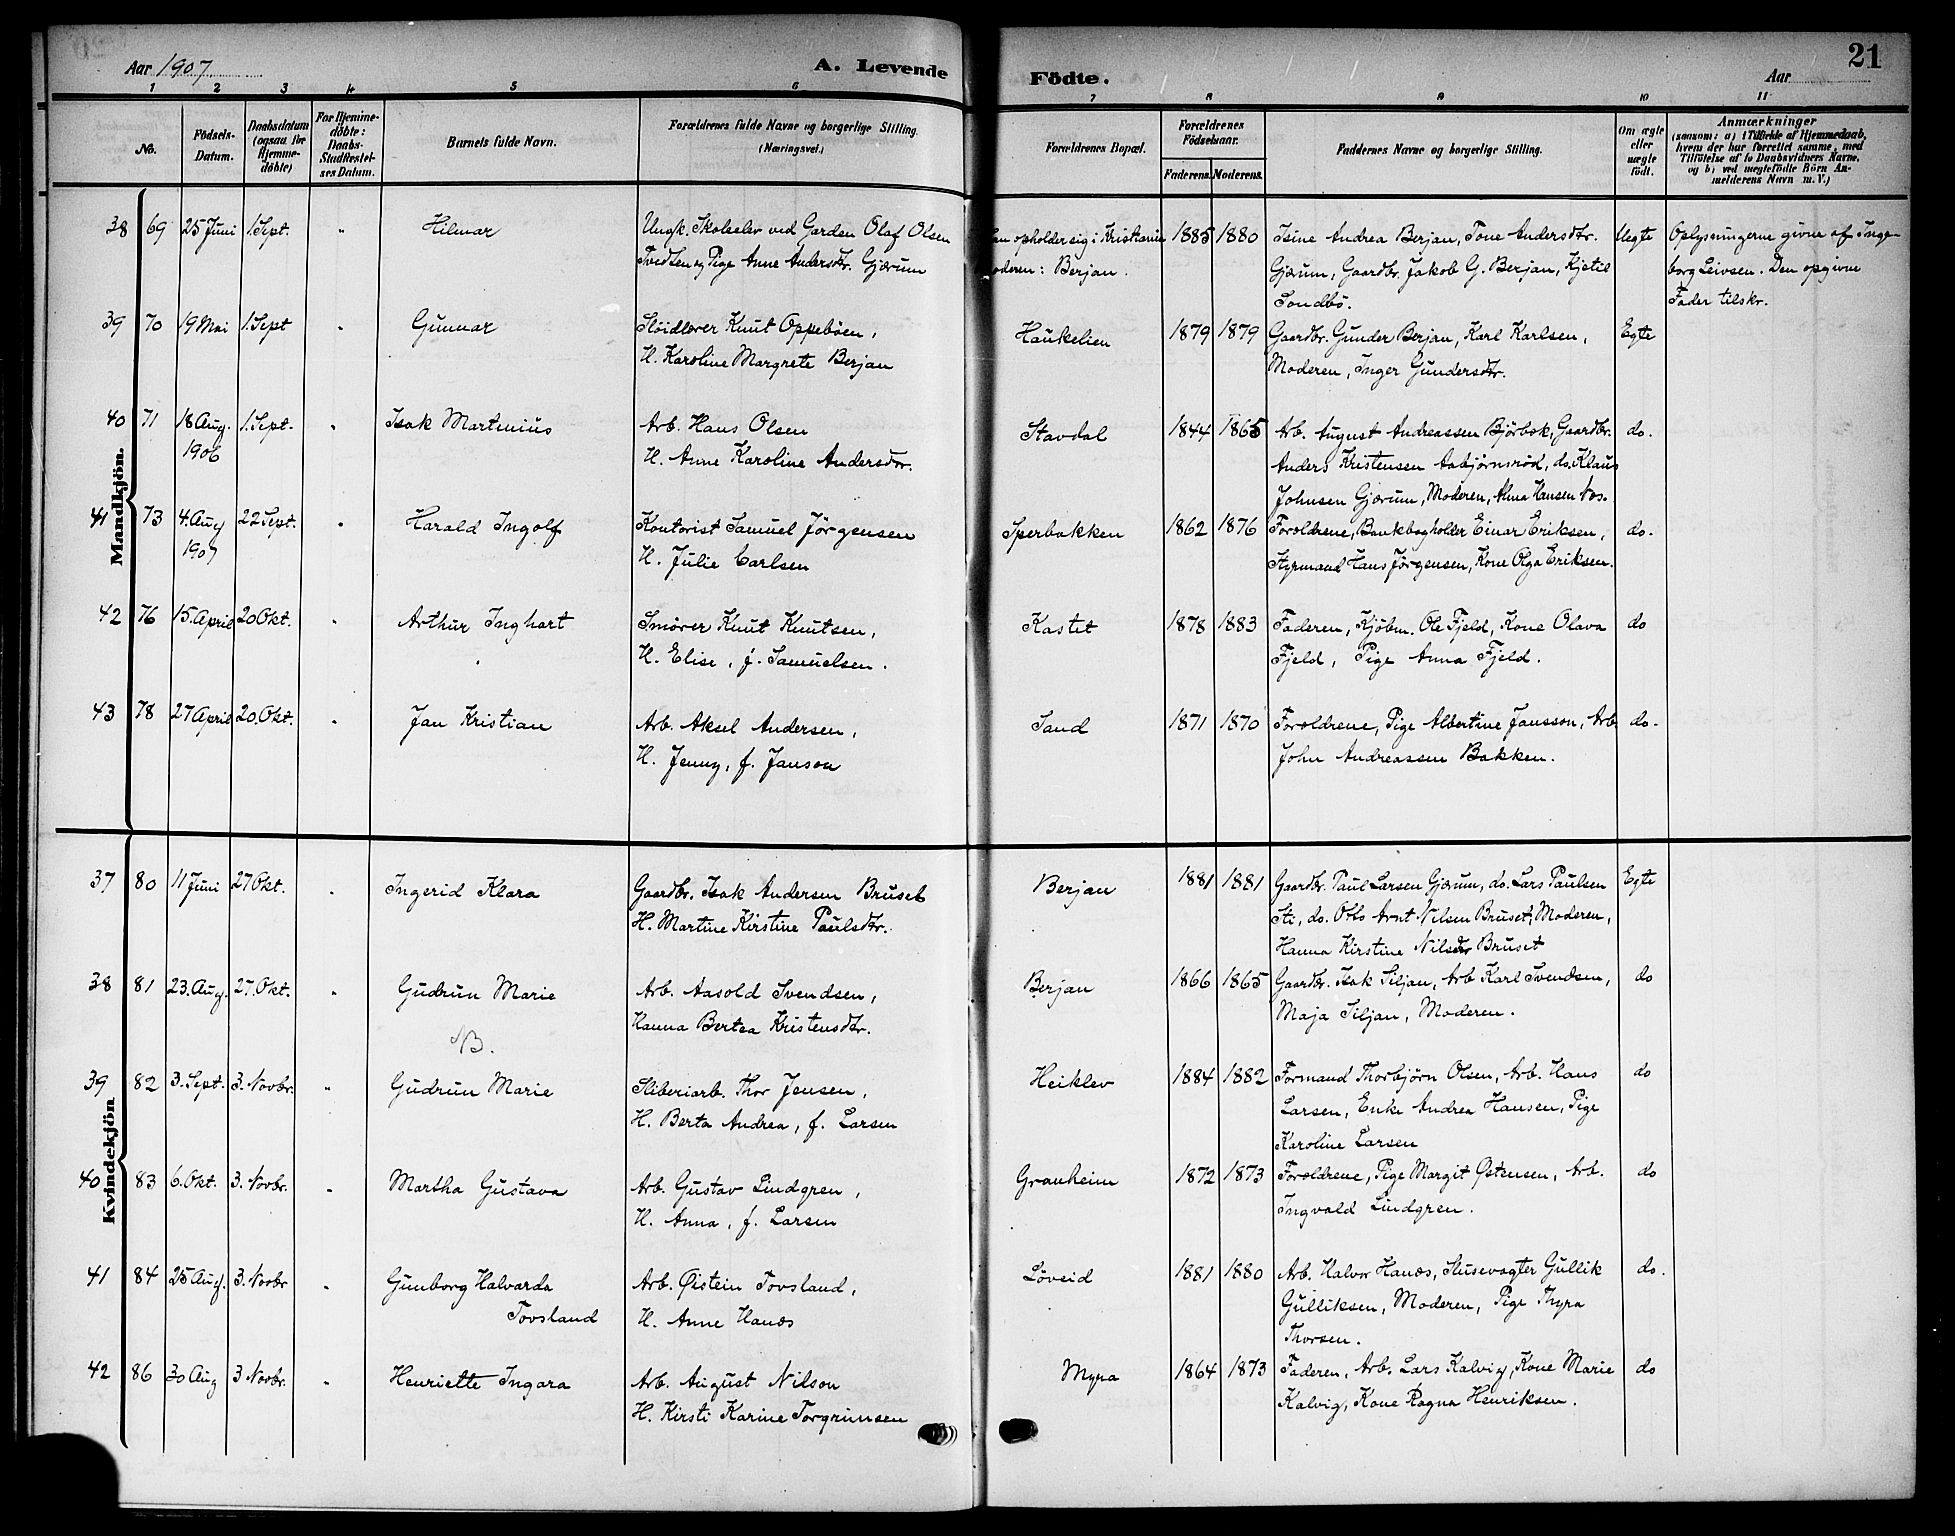 Aar 1907 A. Levende Födte. Aar 21
1 2 3 4 5 6 7 8 9 10 11
No. Födsels-Datum. Daabsdatum (ogsaa for Hjemme-döbte) For Hjemme-döbte: Daabs-Stadfæstel-ses Datum. Barnets fulde Navn. Forældrenes fulde Navne og borgerlige Stilling. (Næringsvei.) Forældrenes Bopæl. Forældrenes Födselsaar. Faderens. Moderens. Faddernes Navne og borgerlige Stilling. Om ægte eller uægte födt. Anmærkninger (saasom: a) i Tilfælde af Hjemmedaab, hvem der har forrettet samme, med Tilföielse af to Daabsvidners Navne, og b) ved uægtefödte Börn Anmelderens Navn m. V.)
Mandkjön.
38 69 25 Juni 1. Sept. " Hilmar Ungk. Skoleelev ved Garden Olaf Olsen opholder sig i Kristiania 1885 1880 Isine Andrea Berjan, Tone Andersdtr. Uegte Oplysningerne givne af Inge-
Tvedten og Pige Anne Andersdtr. Gjærum Moderen: Berjan. Gjærum, Gaardbr. Jakob G. Berjan, Kjetil borg Leivsen. Den opgivne
Sondbö. Fader tilskr.
39 70 19 Mai 1. Sept " Gunnar Slöidlærer Knut Oppeböen, Haukelien 1879 1879 Gaardbr. Gunder Berjan, Karl Karlsen, Egte
H. Karoline Margrete Berjan Moderen, Inger Gundersdtr.
40 71 18 Aug. 1. Sept. " Isak Martenius Arb. Hans Olsen Stavdal 1844 1865 Arb. August Andreassen Björbæk, Gaardbr. do.
1906 H. Anne Karoline Andersdtr. Anders Kristensen Aabjörnsröd, do. Klaus
Johnsen Gjærum, Moderen, Alma Hansen Næs.
41 73 4. Aug 22 Sept. " Harald Ingolf Kontorist Samuel Jörgensen Sperbakken 1862 1876 Forældrene, Bankbogholder Einar Eriksen, do.
1907 H. Julie Carlsen Styrmand Hans Jörgensen, Kone Olga Eriksen.
42 76 15. April 20 Okt. " Arthur Inghart Smörer Knut Knutsen, Kastet 1878 1883 Faderen, Kjöbm. Ole Fjeld, Kone Olava do
H. Elise, f. Samuelsen. Fjeld, Pige Anna Fjeld.
43 78 27 April 20. Okt. " Jan Kristian Arb. Aksel Andersen, Sand 1871 1870 Forældrene, Pige Albertine Jansson, Arb. do.
H. Jenny, f. Janson John Andreassen Bakken.
Kvindekjön
37 80 11 Juni 27 Okt. " Ingerid Klara Gaardbr. Isak Andersen Bruset Berjan 1881 1881 Gaardbr. Paul Larsen Gjærum, do. Lars Paulsen Egte
H. Martine Kirstine Paulsdtr. Sti, do. Otto Arnt Nilsen Bruset, Moderen,
Hanna Kirstine Nilsdtr Bruset
38 81 23. Aug. 27. Okt. " Gudrun Marie Arb. Aasold Svendsen, Berjan 1866 1865 Gaardbr. Isak Siljan, Arb Karl Svendsen, do
Hanna Bertea Kristensdtr. Maja Siljan, Moderen.
NB.
39 82 3. Sept. 3. Novbr. " Gudrun Marie Sliberiarb. Thor Jensen, Heiklev 1884 1882 Formand Thorbjörn Olsen, Arb. Hans do
H. Berta Andrea, f. Larsen Larsen, Enke Andrea Hansen, Pige
Karoline Larsen
40 83 6. Okt. 3. Novbr. " Martha Gustava Arb. Gustav Lindgren, Granheim 1872 1873 Forældrene, Pige Margit Østensen, Arb. do
H. Anna, f. Larsen Ingvald Lindgren.
41 84 25 Aug. 3. Novbr " Gunborg Halvarda Arb. Øistein Tovsland, Löveid 1881 1880 Arb. Halvor Hanæs, Slusevogter Gullik do.
Tovsland H. Anne Hanæs Gulliksen, Moderen, Pige Thyra
Thorsen.
42 86 30 Aug 3 Novbr. " Henriette Ingara Arb. August Nilson Myra 1864 1873 Faderen, Arb. Lars Kalvig, Kone Marie do
H. Kirsti Karine Torgrimsen Kalvig, Kone Ragna Henriksen.